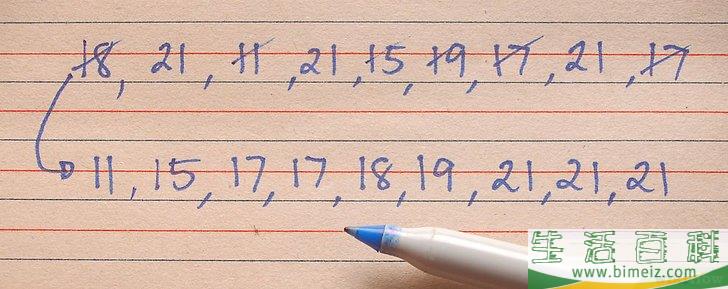 18, 21, 11, 21, 15, 19, 17, 21, 17
11, 15, 17, 17, 18, 19, 21, 21, 21
生活百科
www.bimeiz.com